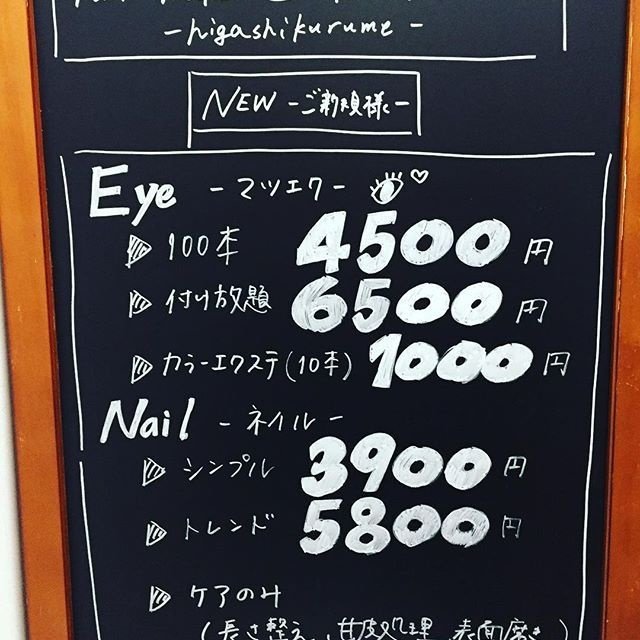 -higashikurume-
NEW -ご新規様-
Eye -マツエク-
100本 4500円
付け放題 6500円
カラーエクステ(10本) 1000円
Nail -ネイル-
シンプル 3900円
トレンド 5800円
ケアのみ
(長さ整え、甘皮処理、表面磨き)